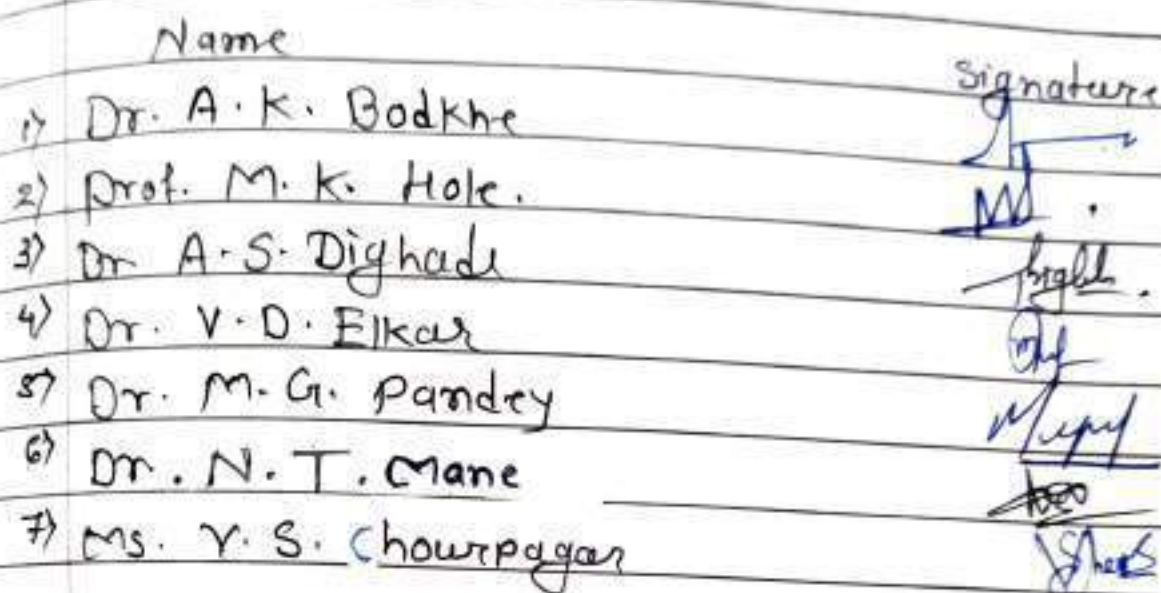 Name Signature
1) Dr. A. K. Bodkhe
2) Prof. M. K. Hole.
3) Dr A. S. Dighade
4) Dr. V. D. Elkar
5) Dr. M. G. Pandey
6) Dr. N. T. Mane
7) Ms. V. S. Chourpagar